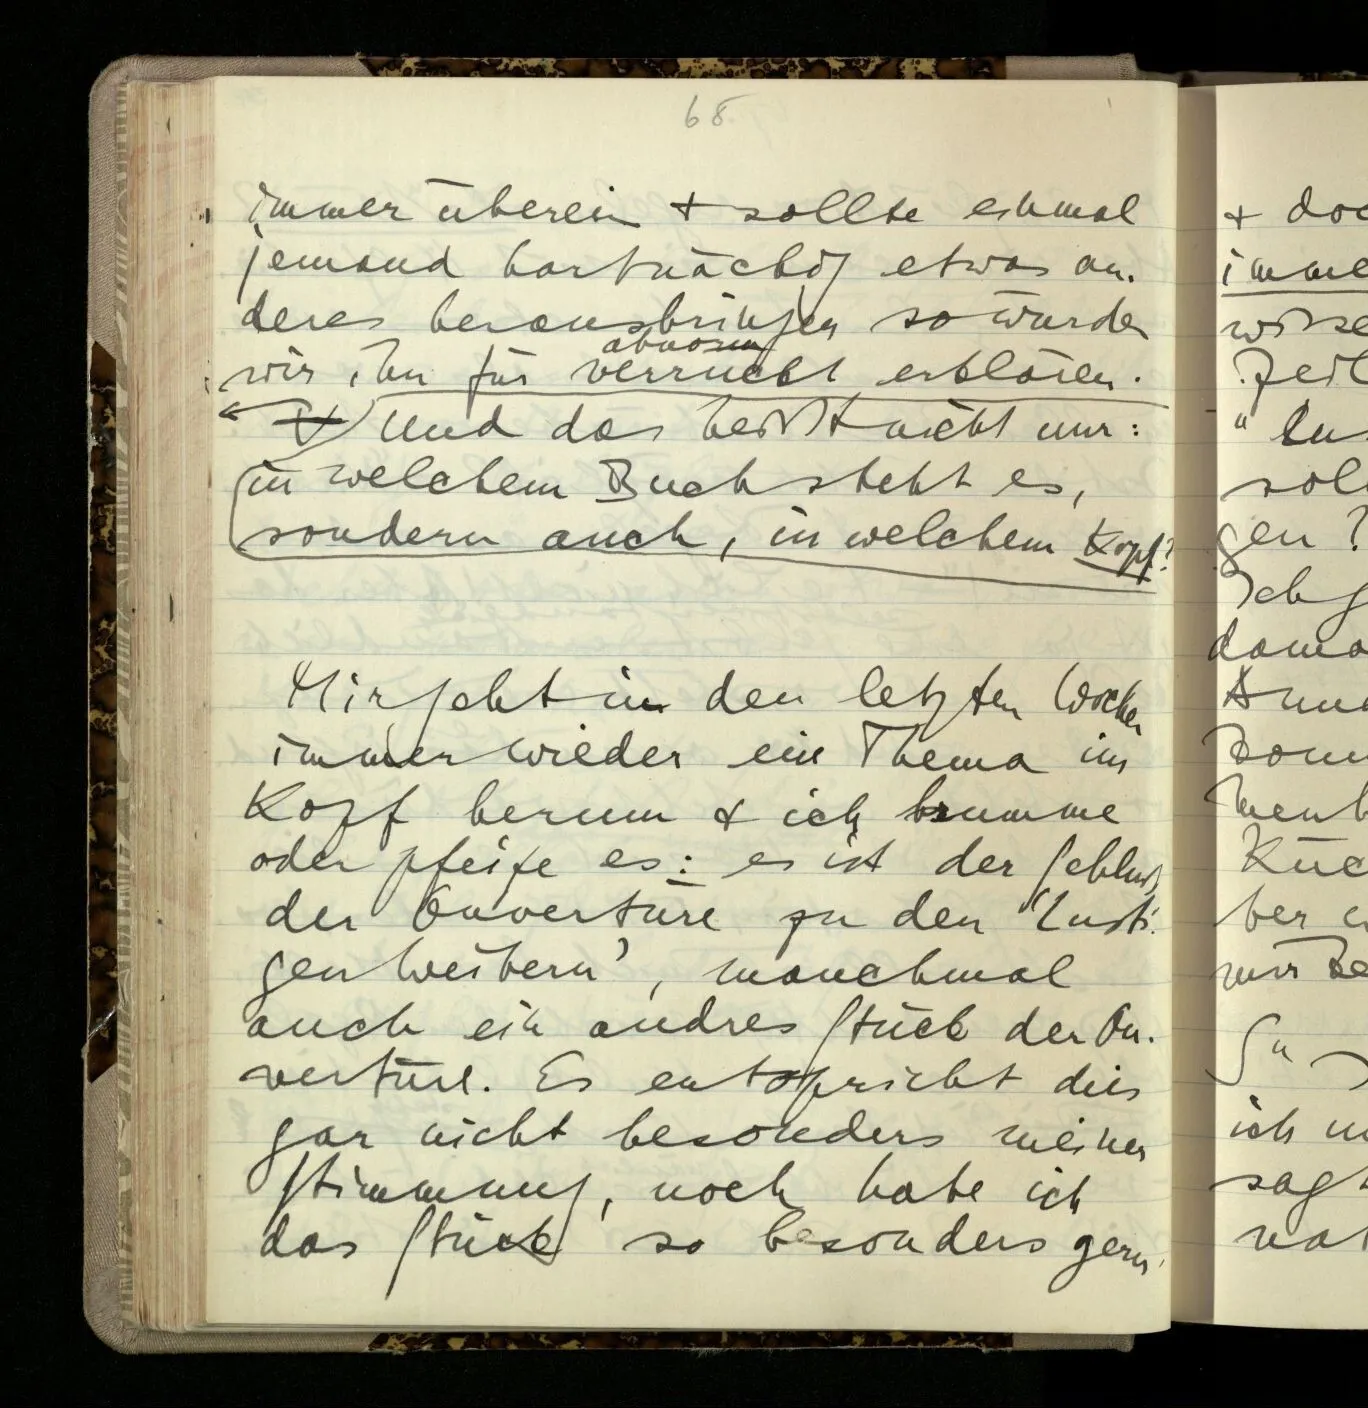 68
immer überein + sollte einmal
jemand hartnäckig etwas an-
deres herausbringen so würden
abnorm
wir ihn für verrückt erklären.
Und das heißt nicht nur:
in welchem Buch steht es,
sondern auch, in welchem Kopf?
Mir geht in den letzten Wochen
immer wieder ein Thema im
Kopf herum + ich brumme
oder pfeife es: es ist der Schluß
der Ouvertüre zu den 'Lusti-
gen Weibern', manchmal
auch ein andres Stück der Ou-
vertüre. Es entspricht dies
gar nicht besonders meiner
Stimmung, noch habe ich
das Stück so besonders gern,
+ doc
imme
wisse
Zeil
" Lus
soll
gen?
Ich g
dama
ber
mir
ich
sagt